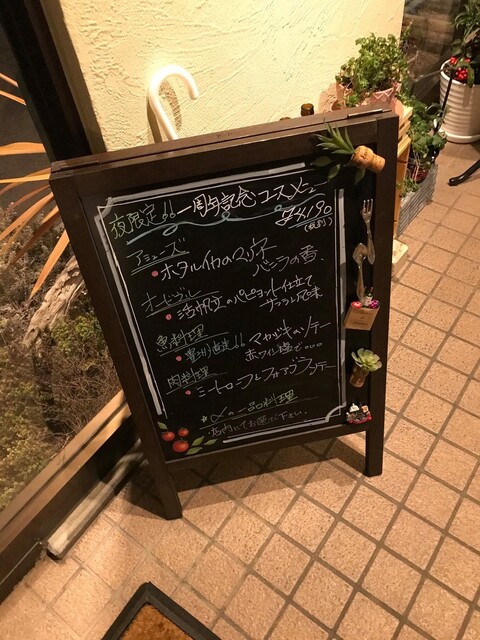 夜限定!! 一周年記念コースメニュー
¥4190
(税別)
アミューズ
• ホタルイカのマリネ
バニラの香り
オードブル
• 活帆立のパピヨット仕立て
サフラン風味
魚料理
• 豊洲直送!! マカジキのソテー
赤ワイン塩で
肉料理
• ミートローフとフォアグラソテー
*〆の一品料理
店内にてお選び下さい。